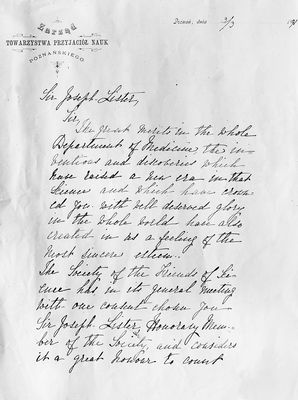 Zarząd
TOWARZYSTWA PRZYJACIÓŁ NAUK
POZNAŃSKIEGO
Poznań, dnia 3/3 18
Sir Joseph Lister,
Sir,
The great merits in the whole
Department of Medicine the in-
ventions and discoveries which
have raised a new era in that
Science and which have crown
ed you with well deserved glory
in the whole world have also
created in us a feeling of the
most sincere esteem.
The Society of the Friends of Sci-
ence has in its general meeting
with one consent chosen you
Sir Joseph Lister, Honorary Mem-
ber of the Society, and considers
it a great honour to count